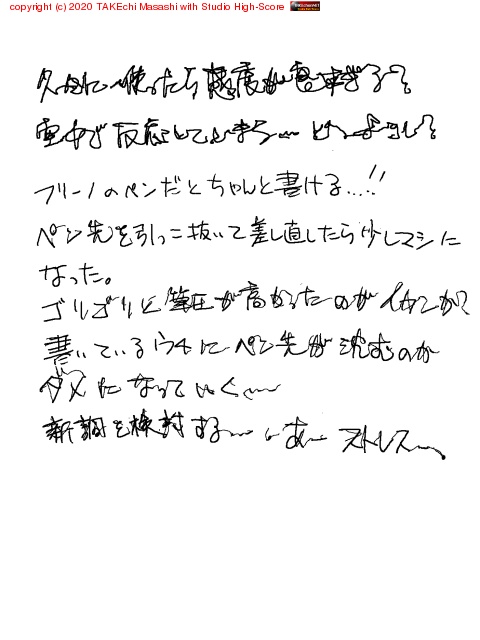 copyright (c) 2020 TAKEchi Masashi with Studio High-Score
久々に使ったら感度が良すぎる?
空中で反応してしまう… どうしよう?
フリーノのペンだとちゃんと書ける…!!
ペン先を引っこ抜いて差し直したら少しマシに
なった。
ゴリゴリと筆圧が高かったのがイカンか?
書いているウチにペン先が沈むのか
ダメになっていく…
新調を検討する… まあ… ストレス…